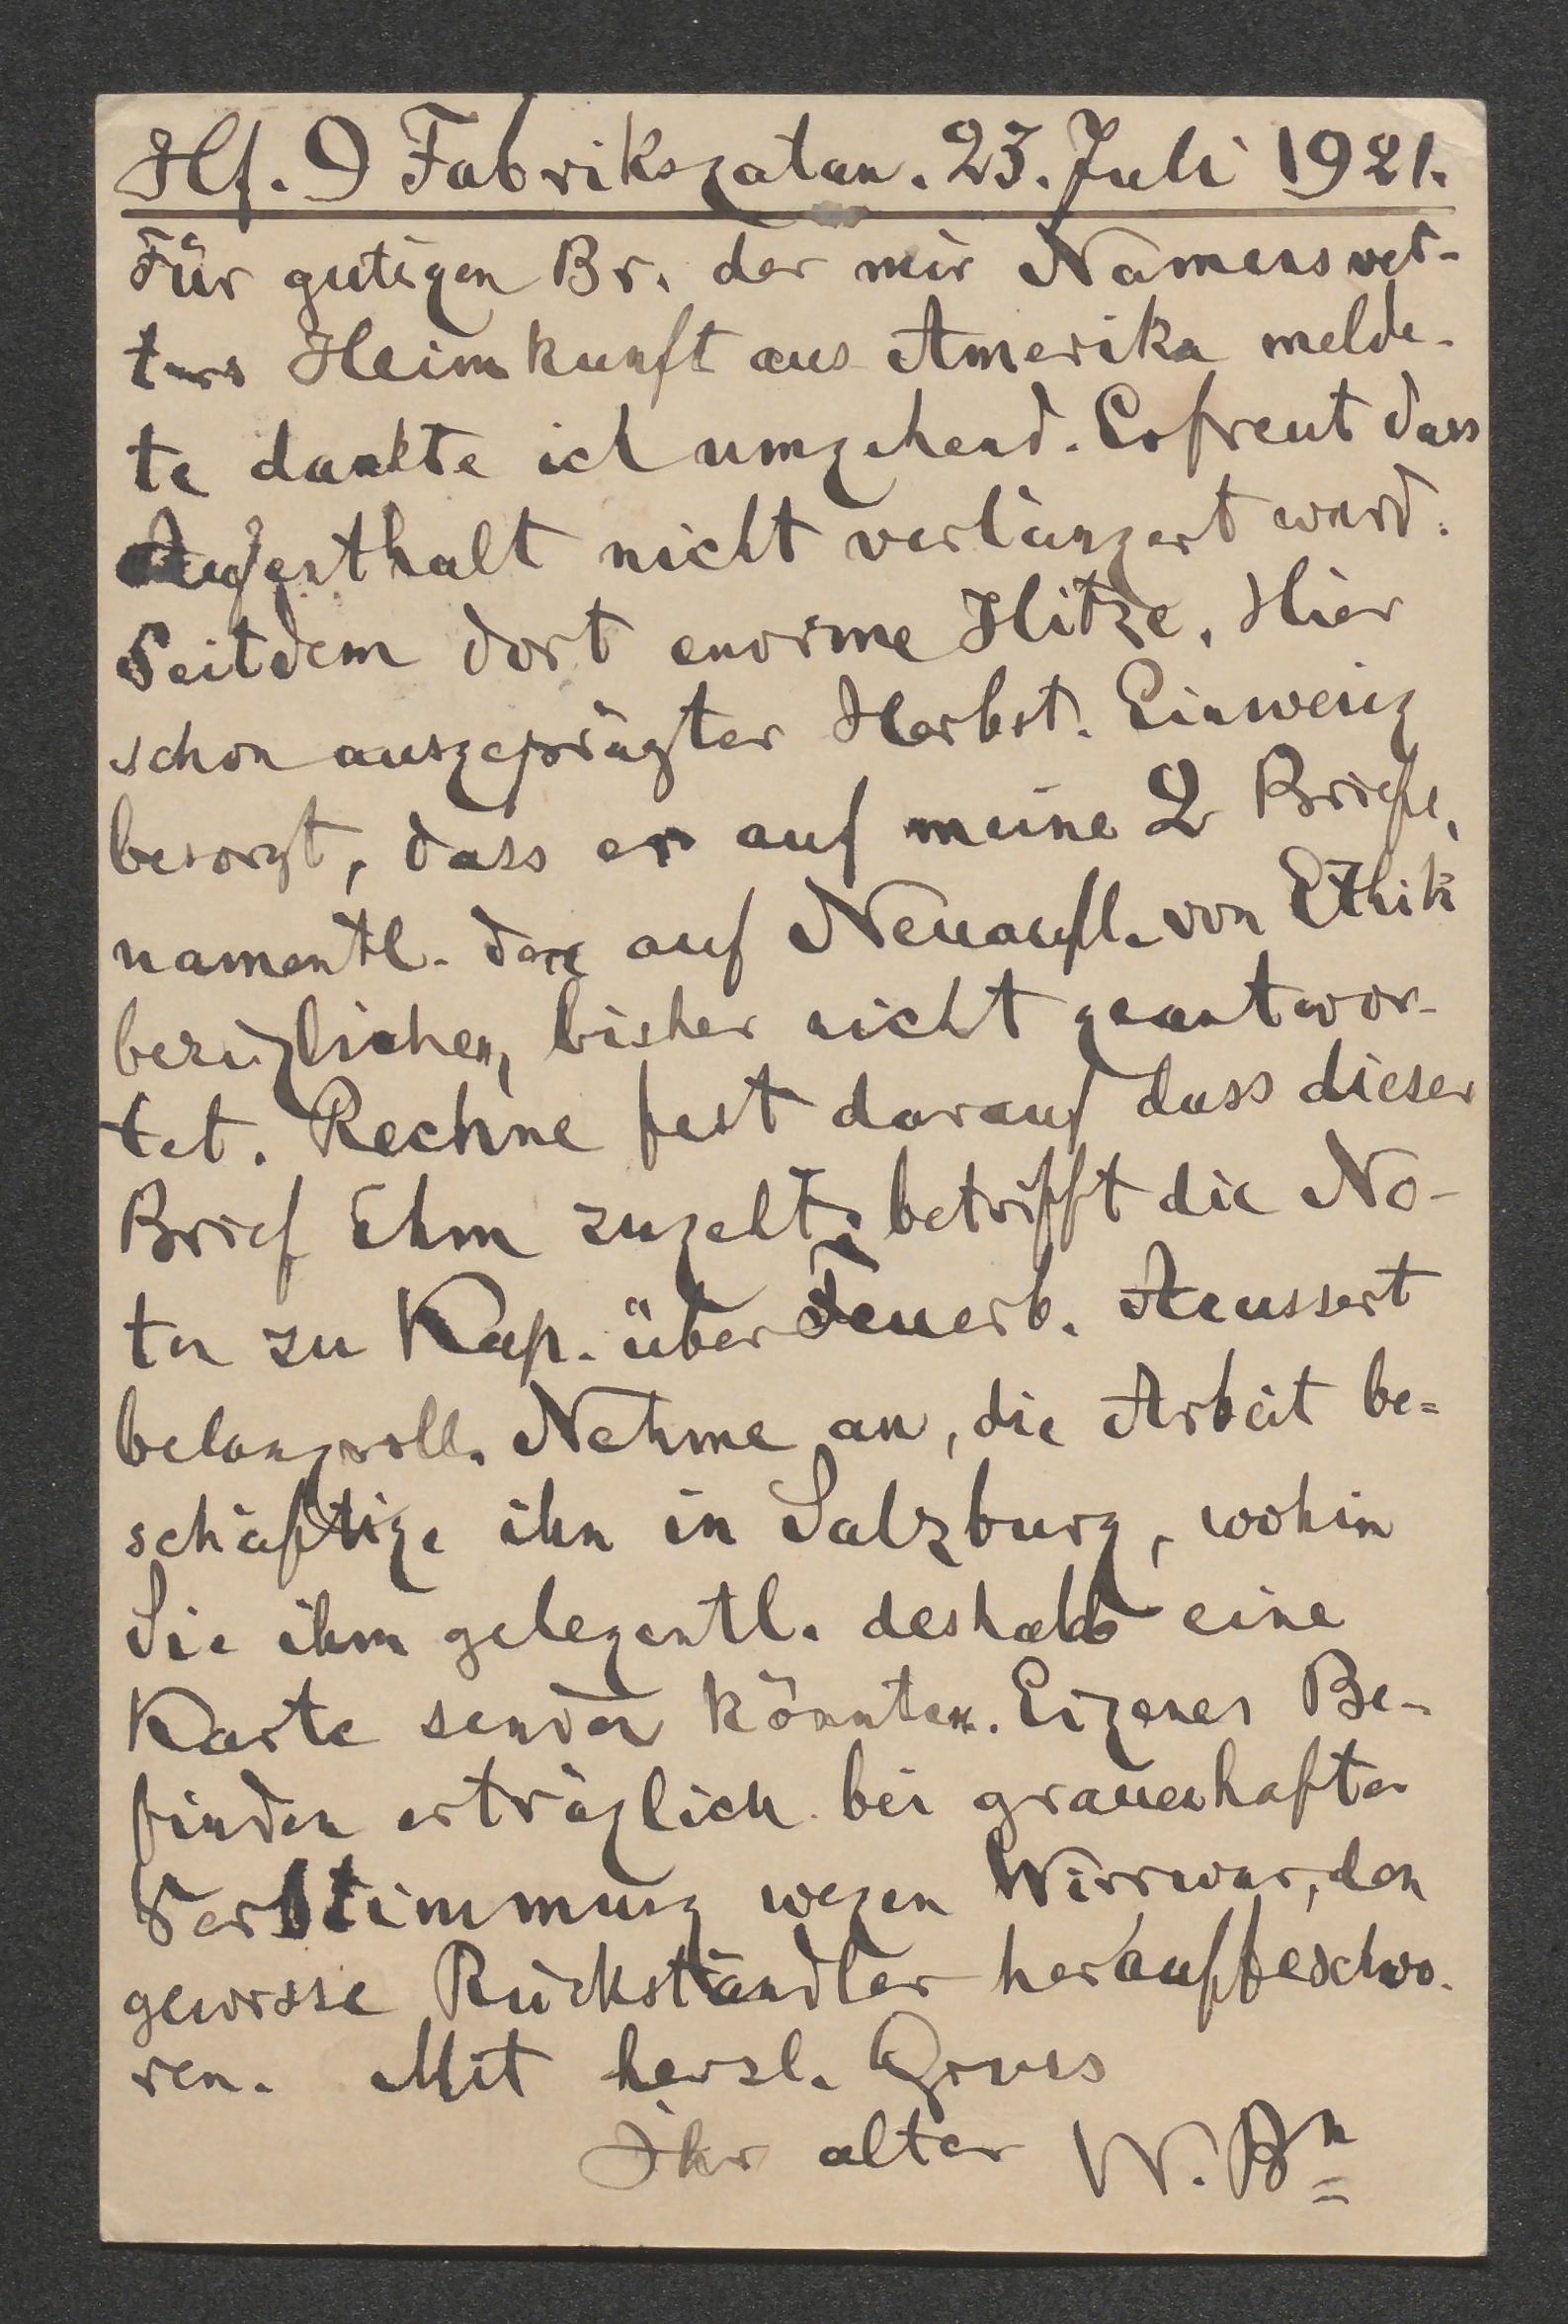 Hf. 9 Fabriksgatan. 23. Juli 1921.
Für gütigen Br. der mir Namensvet-
ters Heimkunft aus Amerika melde-
te dankte ich umgehend. Erfreut dass
Aufenthalt nicht verlängert ward.
Seitdem dort enorme Hitze. Hier
schon ausgeprägter Herbst. Einwenig
besorgt, dass er auf meine 2 Briefe,
namentl. den auf Neuaufl. von Ethik
bezüglichen, bisher nicht geantwor-
tet. Rechne fest darauf dass dieser
Brief Ihm zugeht; betrifft die No-
ten zu Kap. über Feuerb. Aeussert
belangvoll. Nehme an, die Arbeit be-
schäftige ihn in Salzburg, wohin
Sie ihm gelegentl. deshalb eine
Karte senden könnten. Eigenes Be-
finden erträglich bei grauenhafter
Verstimmung wegen Wirrwar, den
gewisse Rückständler heraufbeschwo-
ren. Mit herzl. Gruss
Ihr alter W. Bn